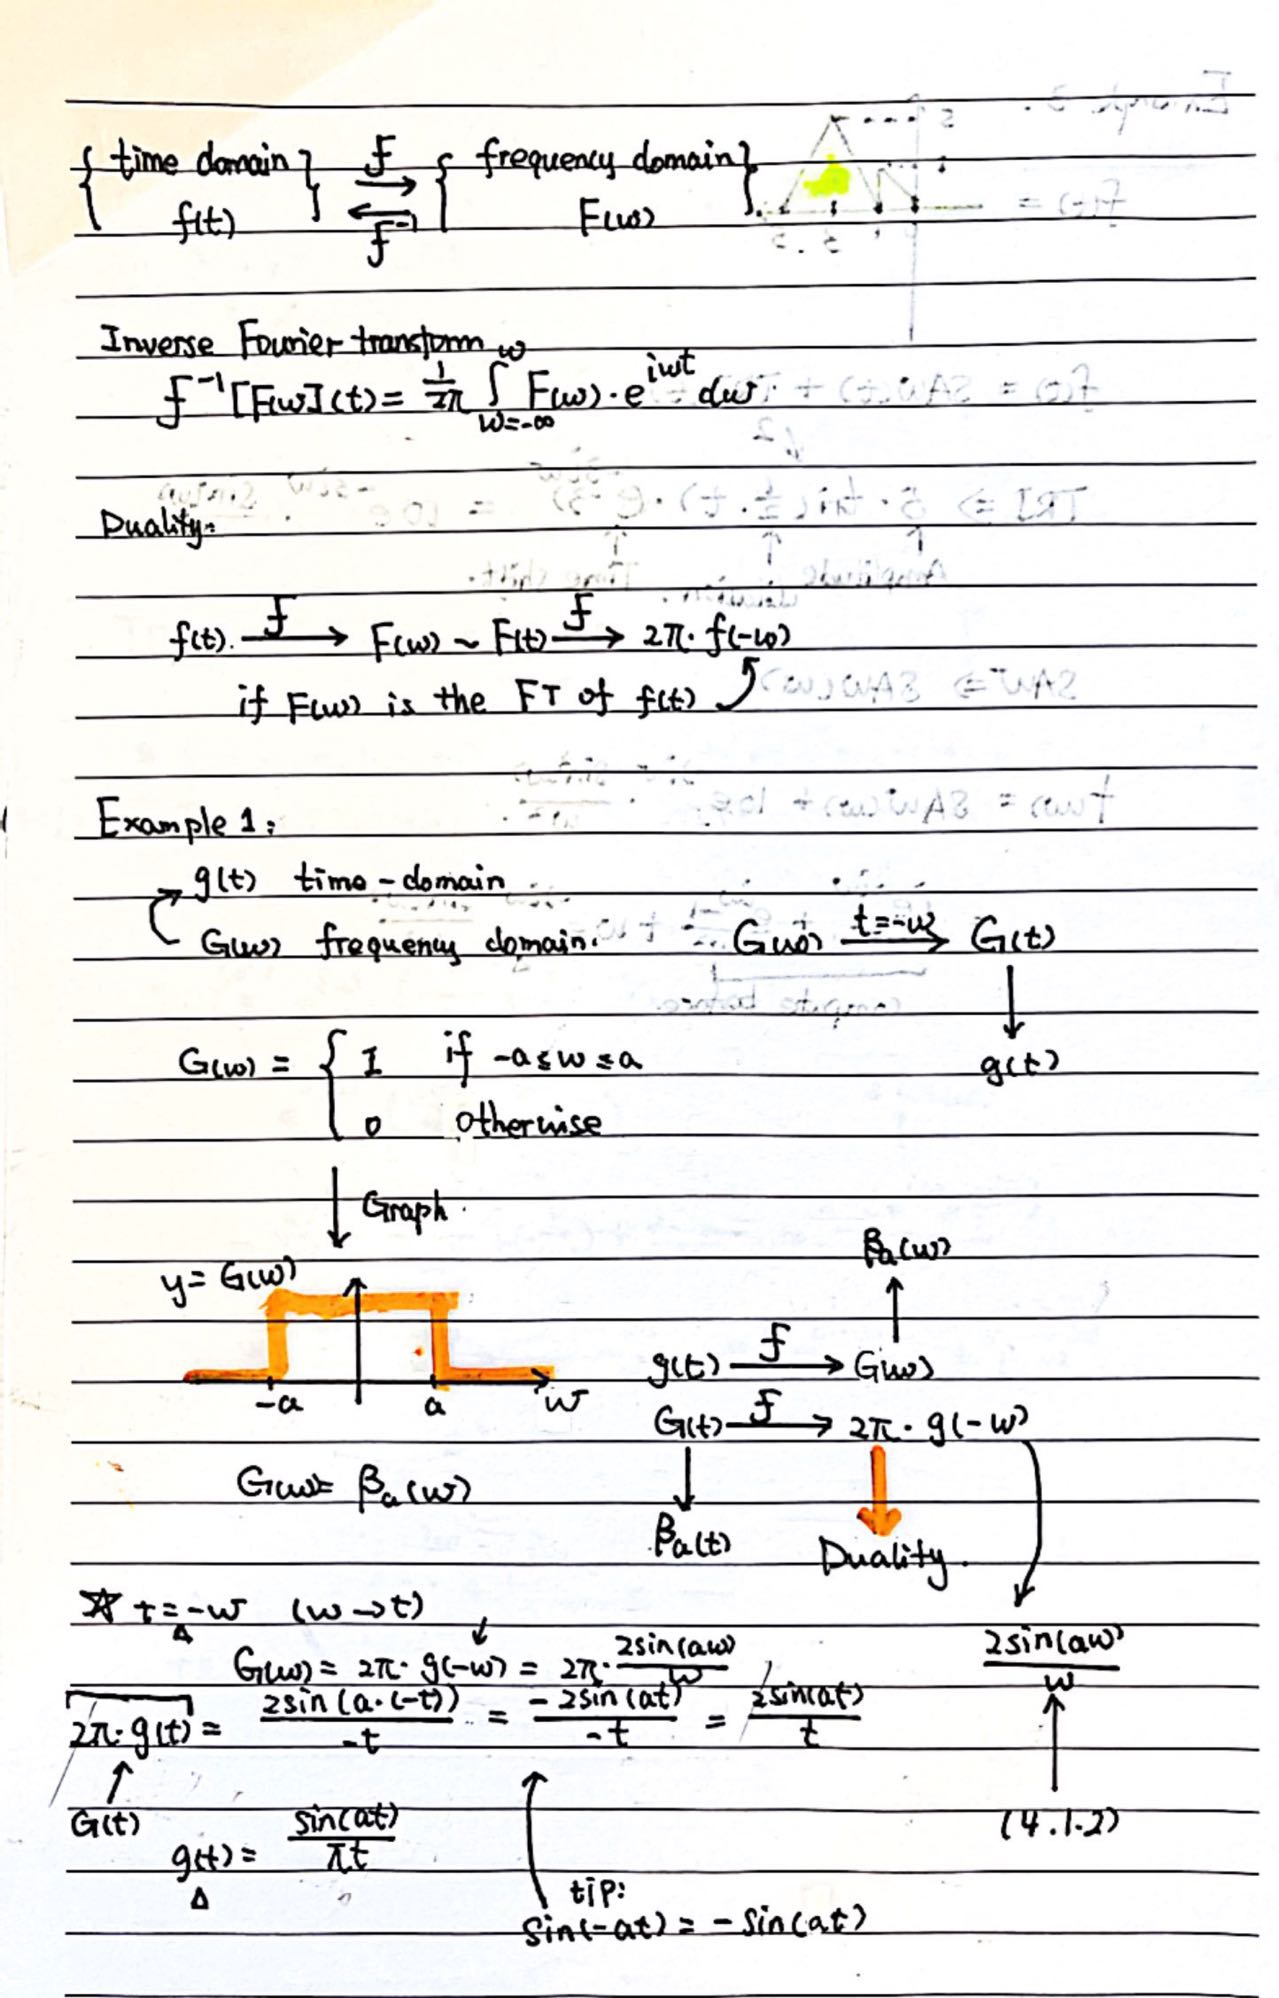 { time domain } F→ { frequency domain }
f(t) ←F⁻¹ F(ω)
Inverse Fourier transform
F⁻¹[F(ω)](t) = 1/2π ∫_{ω=-∞}^{∞} F(ω)·e^{iωt} dω
Duality:
f(t). —F→ F(ω) ~ F(t) —F→ 2π·f(-ω)
if F(ω) is the FT of f(t)
Example 1:
g(t) time-domain
G(ω) frequency domain. G(ω) —t=-ω→ G(t)
↓
G(ω) = { 1 if -a≤ω≤a g(t)
0 otherwise
↓ Graph.
βa(ω)
y = G(ω)
↑
g(t) —F→ G(ω)
-a a ω
G(t) —F→ 2π·g(-ω)
G(ω)= βa(ω)
βa(t) Duality.
☆ t=-ω (ω→t)
G(ω) = 2π·g(-ω) = 2π·2sin(aω)/ω 2sin(aω)/ω
2π·g(t) = 2sin(a·(-t))/-t = -2sin(at)/-t = 2sin(at)/t
G(t) (4.1.2)
g(t) = sin(at)/πt
tip:
sin(-at) = -sin(at)